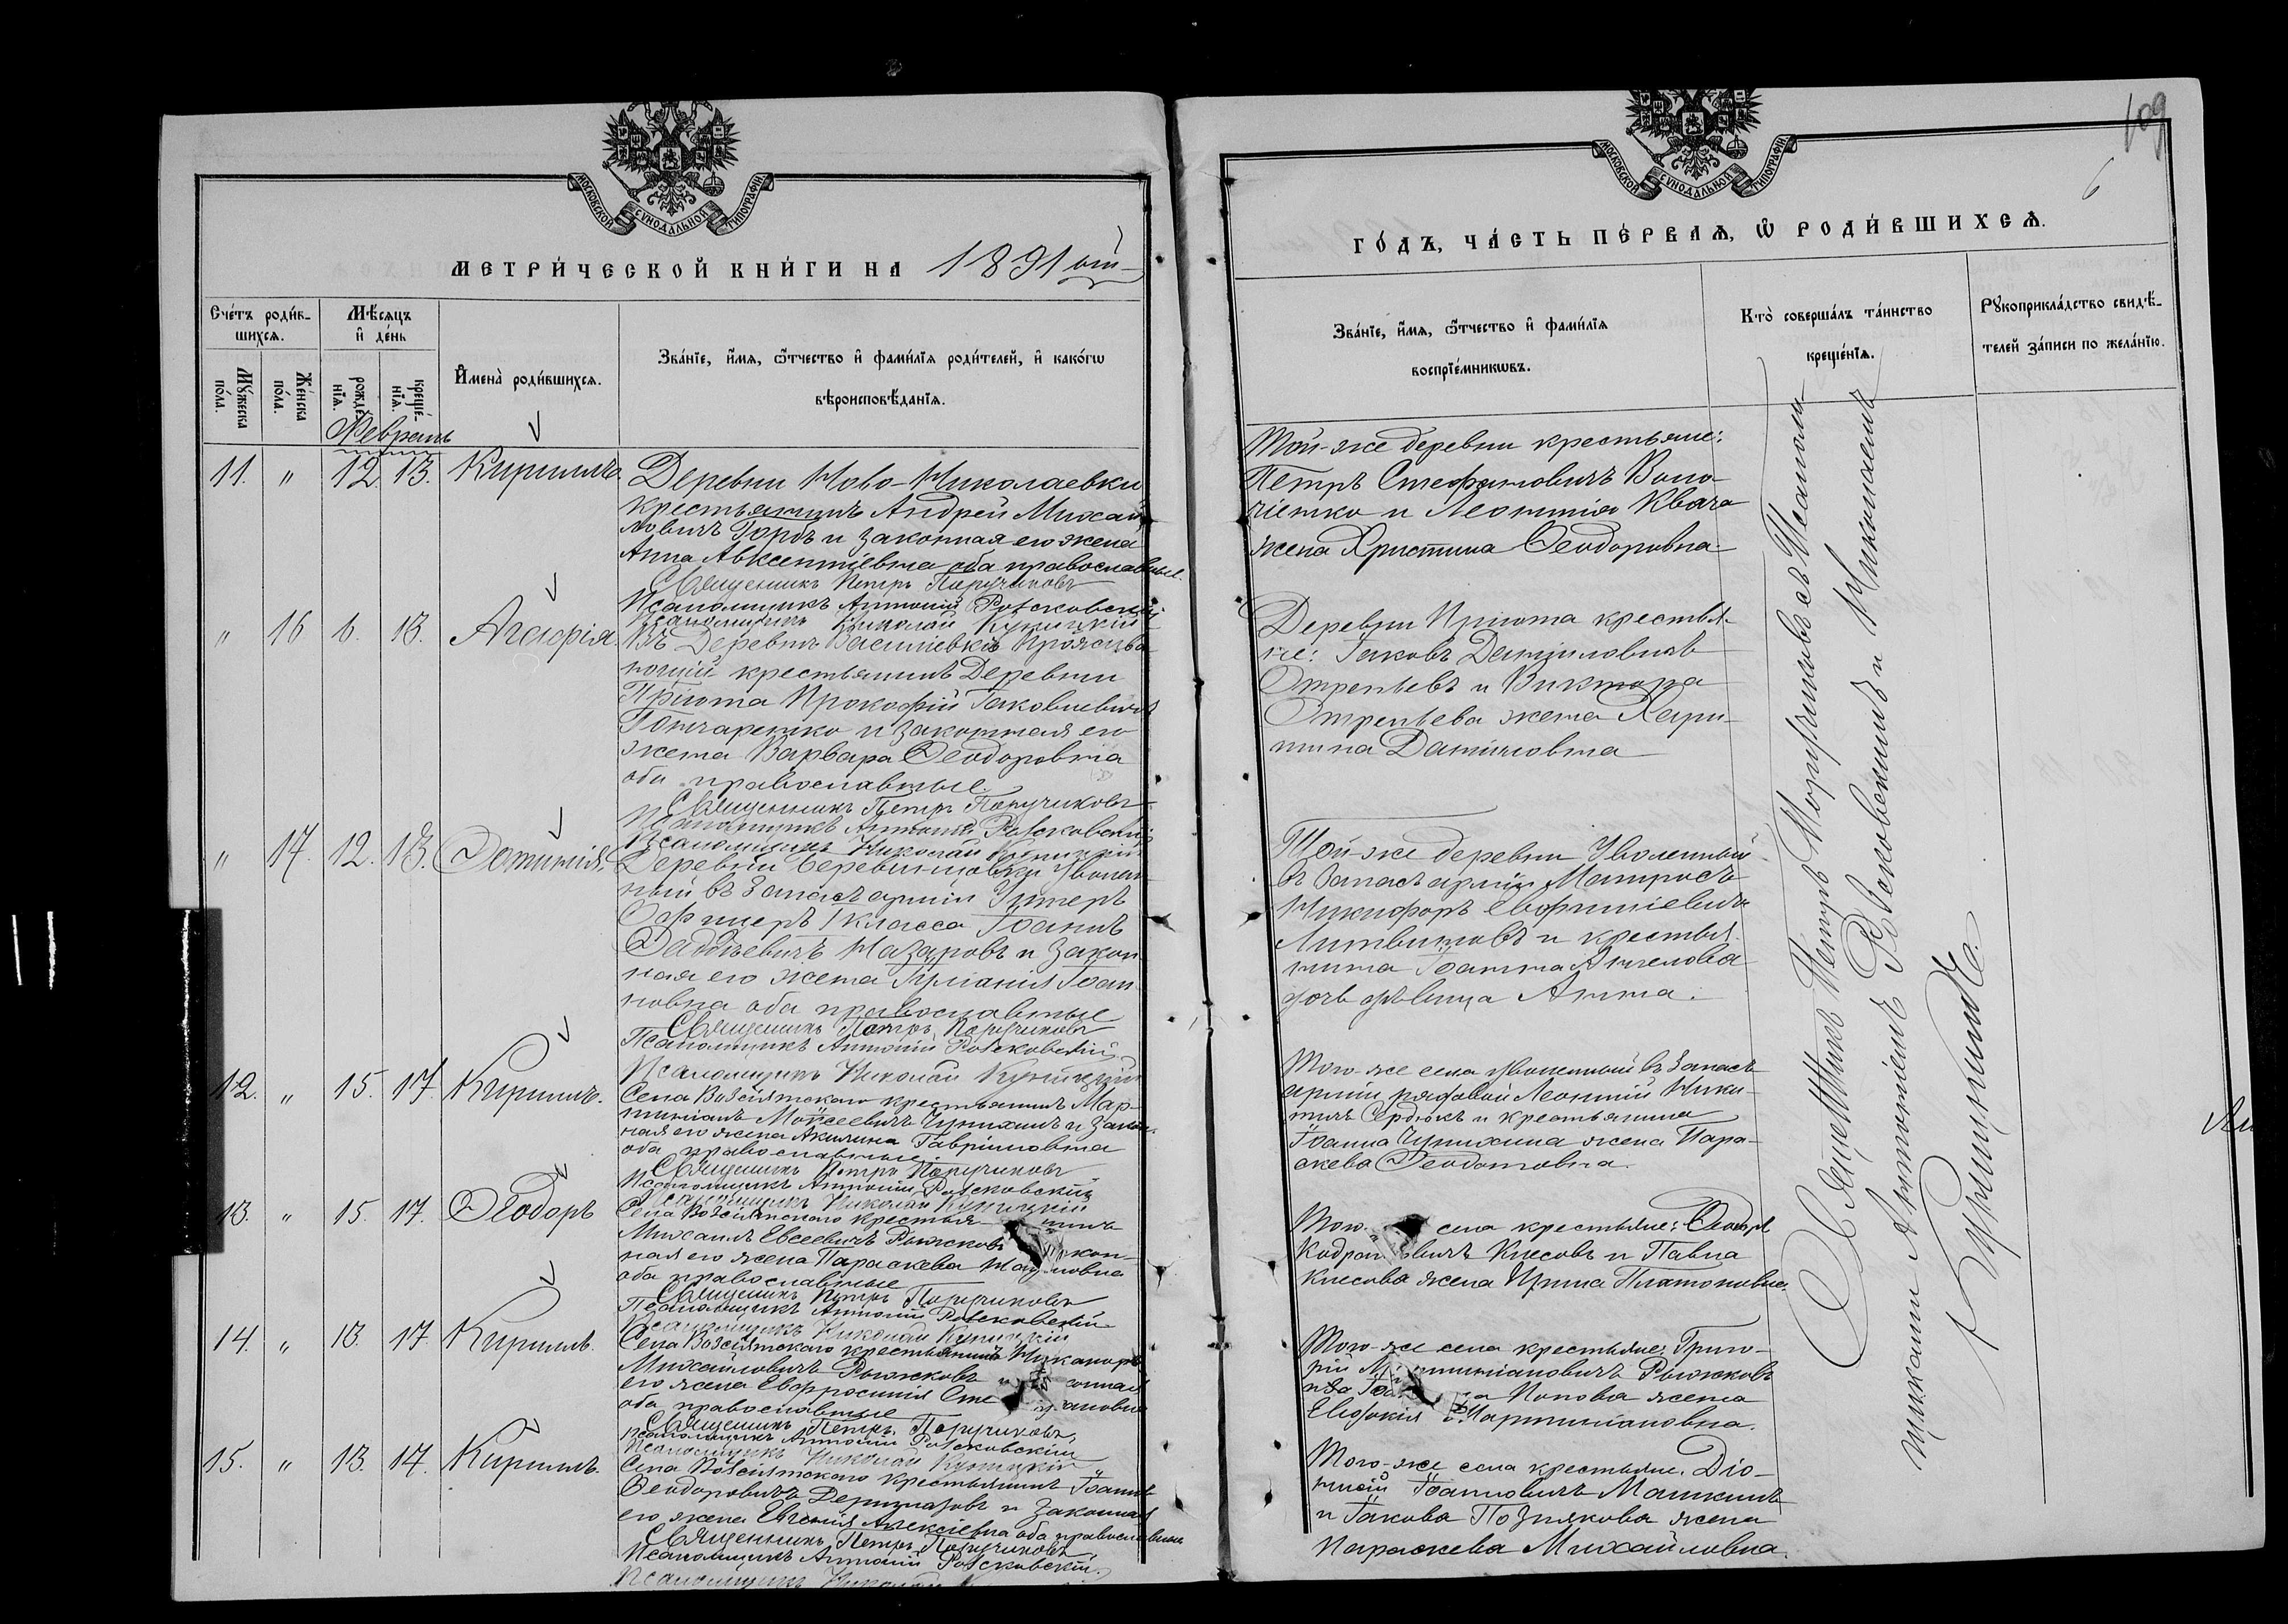 МОСКОВСКОЙ СѴНОДАЛЬНОЙ ТИПОГРАФІИ
МЕТРИ́ЧЕСКОЙ КНИ́ГИ НА 1891 ый
Сче́тъ роди́в-
шихсѧ.
Мꙋ́жеска по́ла.
Же́нска по́ла.
Мѣ́сѧцъ
и҆ де́нь
рожде́нїѧ.
креще́нїѧ.
И҆мена̀ роди́вшихсѧ.
Зва́нїе, и҆́мѧ, ѻ҆́тчество и҆ фами́лїѧ роди́телей, и҆ како́гѡ
вѣроисповѣ́данїѧ.
Февраль
11. " 12 13. Кириллъ.
Деревни Ново-Николаевки
крестьянинъ Андрей Михай
ловичъ Горбъ и законная его жена
Анна Авксентіевна оба православные.
Священникъ Петръ Поручиковъ
Псаломщикъ Антоній Рожсковскій
Псаломщикъ Николай Купицкій
" 16 6. 13. Агафія.
Въ Деревнѣ Василіевкѣ прожива
ющій крестьянинъ Деревни
Пріюта Прокофій Іаковлевичъ
Гончаренко и законная его
жена Варвара Ѳеодоровна
оба православные.
Священникъ Петръ Поручиковъ
Псаломщикъ Антоній
Псаломщикъ Николай
" 17. 12. 13.
Деревни уволен
ный въ Запасъ арміи Унтеръ
Офицеръ 1 класса Іоаннъ
Назаровъ и закон
ная его жена Іоан
новна оба православные
Священникъ Петръ Поручиковъ
Псаломщикъ Антоній
Псаломщикъ Николай
12. " 15. 17. Кириллъ.
Села Возсіятскаго крестьянинъ Мар-
тиніанъ Моѵсеевичъ Чунихинъ и закон
ная его жена Акилина Гавріиловна
оба православные
Священникъ Петръ Поручиковъ
Псаломщикъ Антоній
Псаломщикъ Николай
13. " 15. 17. Ѳеодоръ
Села Возсіятскаго крестья нинъ
Михаилъ Евсеевичъ Рыжковъ закон
ная его жена Параскева
оба православные
Священникъ Петръ Поручиковъ
Псаломщикъ Антоній
Псаломщикъ Николай
14. " 13. 17. Кириллъ.
Села Возсіятскаго крестьянинъ Никаноръ
Михайловичъ Рыжковъ и
его жена Евфросинія
оба православные
Священникъ Петръ Поручиковъ,
Псаломщикъ Антоній
Псаломщикъ Николай
15. " 13. 17. Кириллъ.
Села Возсіятскаго крестьянинъ Іоаннъ
Ѳеодоровичъ и законная
его жена Евгенія Алексіевна оба православные
Священникъ Петръ Поручиковъ
Псаломщикъ Антоній
Псаломщикъ Николай
109
6
МОСКОВСКОЙ СѴНОДАЛЬНОЙ ТИПОГРАФІИ
ГО́ДЪ, ЧА́СТЬ ПЕ́РВАѦ, Ѡ҆ РОДИ́ВШИХСѦ.
Зва́нїе, и҆́мѧ, ѻ҆́тчество и҆ фами́лїѧ
воспрїе́мникѡвъ.
Кто̀ соверша́лъ та́инство
креще́нїѧ.
Рꙋкоприкла́дство свидѣ́-
телей за́писи по жела́нїю.
Той-же деревни крестьяне:
Петръ Стефановичъ Воло-
шенко и Леонтія Квача
жена Христина Ѳеодоровна
Деревни Пріюта крестья-
не: Іаковъ Даніиловичъ
Отрепьевъ и Виктора
Отрепьева жена Хари-
тина Даніиловна
Той-же деревни уволенный
въ Запасъ арміи Матросъ
Никифоръ Евфиміевичъ
Литвиновъ и крестья-
нина Іоанна
дочь дѣвица Анна.
Того-же села уволенный въ Запасъ
арміи рядовой Леонтій Ники-
тичъ Сердюкъ и крестьянина
Іоанна Чунихина жена Пара-
скева Ѳеодотовна.
Того- села крестьяне: Ѳеодоръ
Кодратовичъ Киесовъ и Павла
Киесова жена Ирина Платоновна.
Того-же села крестьяне: Григо-
рій Мартиніановичъ Рыжковъ
Попова жена
Евдокія Мартиніановна.
Того-же села крестьяне: Діо-
нисій Іоанновичъ Машкинъ
и Іакова Познякова жена
Параскева Михайловна.
Священникъ Петръ Поручиковъ съ Псалом
щиками Антоніемъ и Николаемъ
Купицкимъ.